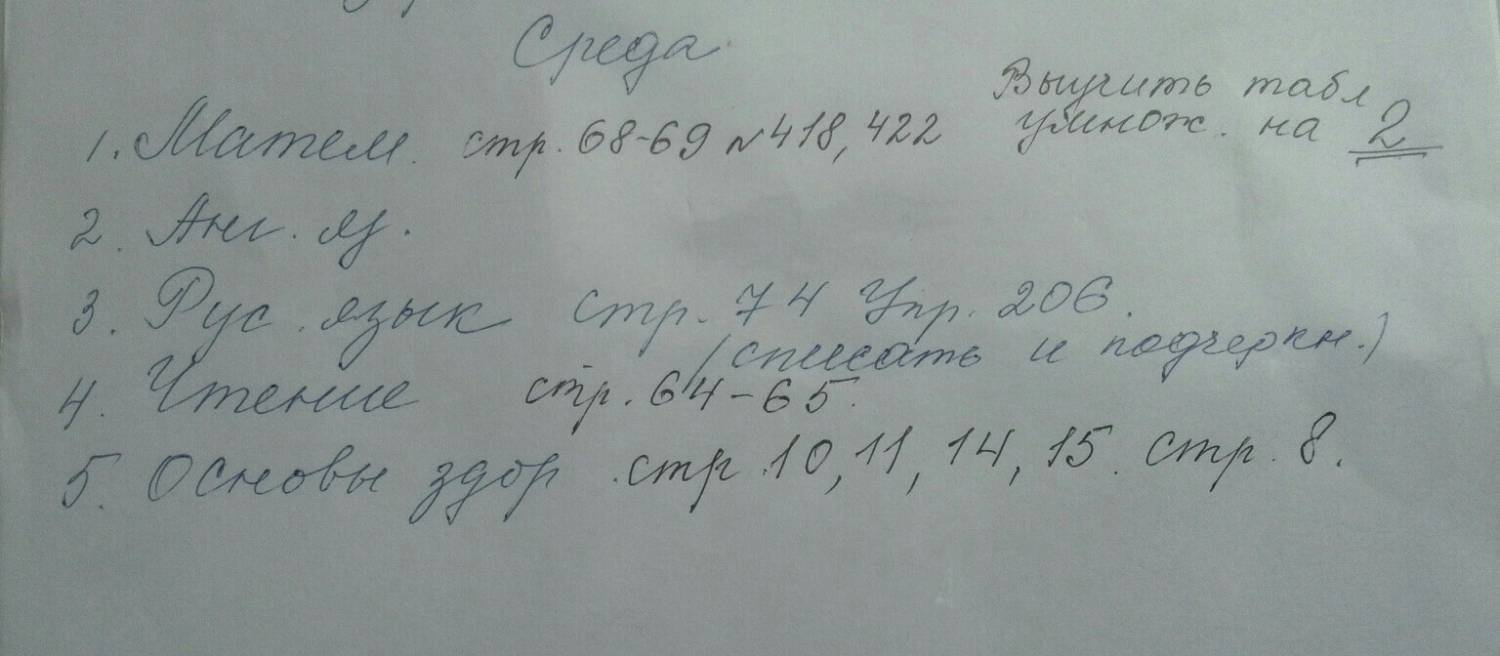 Среда
1. Матем. стр. 68-69 №418, 422 Выучить табл
умнож. на 2
2. Анг. яз.
3. Рус. язык стр. 74 Упр. 206.
(списать и подчеркн.)
4. Чтение стр. 64-65.
5. Основы здор. стр. 10, 11, 14, 15. стр. 8.